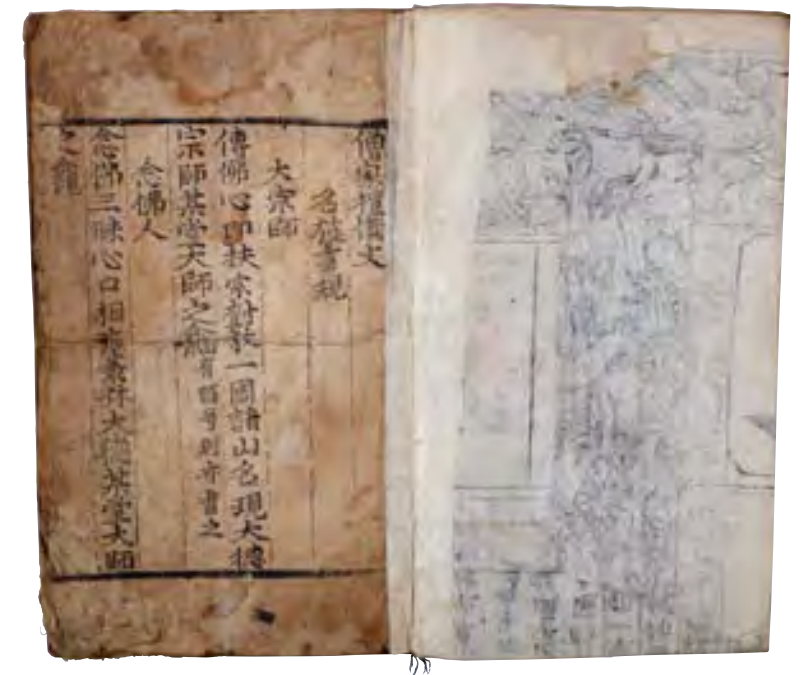 僧家禮儀文
名旌書規
大宗師
傳佛心印扶宗樹敎一國諸山名現大禪
宗師某堂大師之龕有職号則亦書之
念佛人
念佛三昧心口相應大某堂大師
之龕